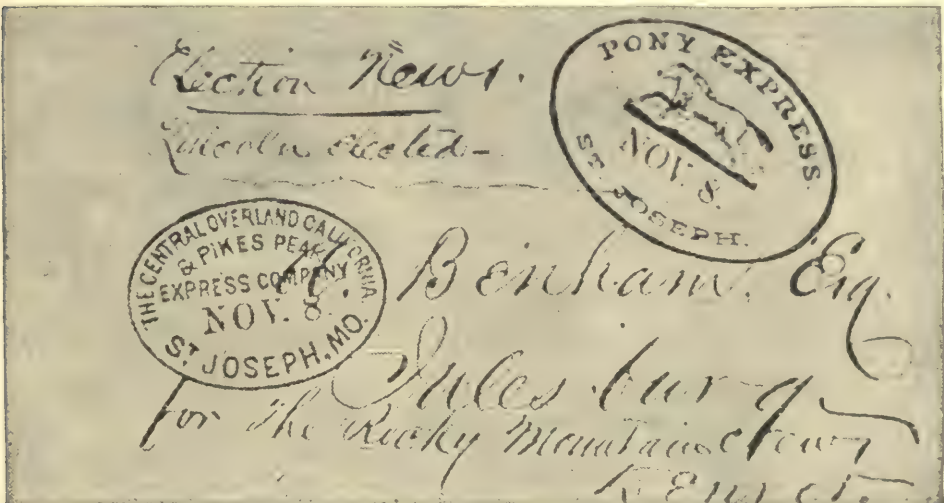 Election News.
Lincoln elected-
PONY EXPRESS.
NOV. 8.
ST JOSEPH.
THE CENTRAL OVERLAND CALIFORNIA
& PIKES PEAK
EXPRESS COMPANY
NOV. 8.
ST JOSEPH, MO.
Benham, Esq.
Julesburg
for the Rocky Mountain News
Denver.